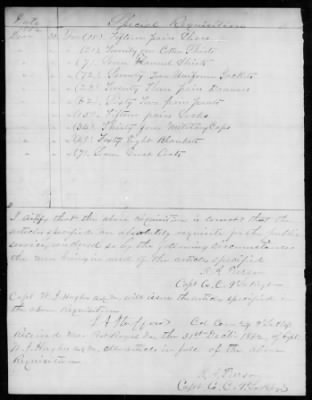 Date Special Requisition
For (15) Fifteen pair Shoes
" (21) Twenty one Cotton Shirts
" (7) Seven Flannel Shirts
" (72) Seventy Two Uniform Jackets
" (23) Twenty Three pair Drawers
" (62) Sixty Two pair pants
" (15) Fifteen pair Socks
" (34) Thirty four Military Caps
" (48) Forty Eight Blankets
" (7) Seven Great Coats
I certify that the above requisition is correct & that the
articles specified are absolutely requisite for the public
service, rendered so by the following circumstances
the men being in need of the articles specified
Capt Co. C.
Capt W. J. Hughes AQM will issue the articles specified in
the above requisition
Col Com
Received 31st Dec 1862 of Capt
W. J. Hughes AQM the articles in full of the above
Requisition
Capt Co. C.